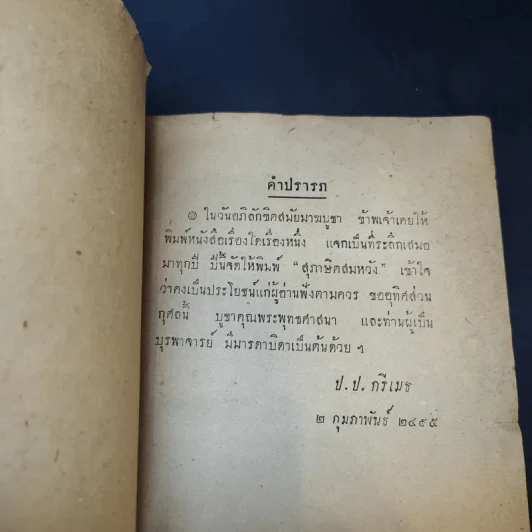 คำปรารภ
๏ ในวันอภิลักขิตสมัยมาฆบูชา ข้าพเจ้าเคยให้
พิมพ์หนังสือเรื่องใดเรื่องหนึ่ง แจกเป็นที่ระลึกเสมอ
มาทุกปี ปีนี้จัดให้พิมพ์ “สุภาษิตสมหวัง” เข้าใจ
ว่าคงเป็นประโยชน์แก่ผู้อ่านฟังตามควร ขออุทิศส่วน
กุศลนี้ บูชาคุณพระพุทธศาสนา และท่านผู้เป็น
บุรพาจารย์ มีมารดาบิดาเป็นต้นด้วย ฯ
ป.ป. กรีเมธ
๒ กุมภาพันธ์ ๒๔๙๕